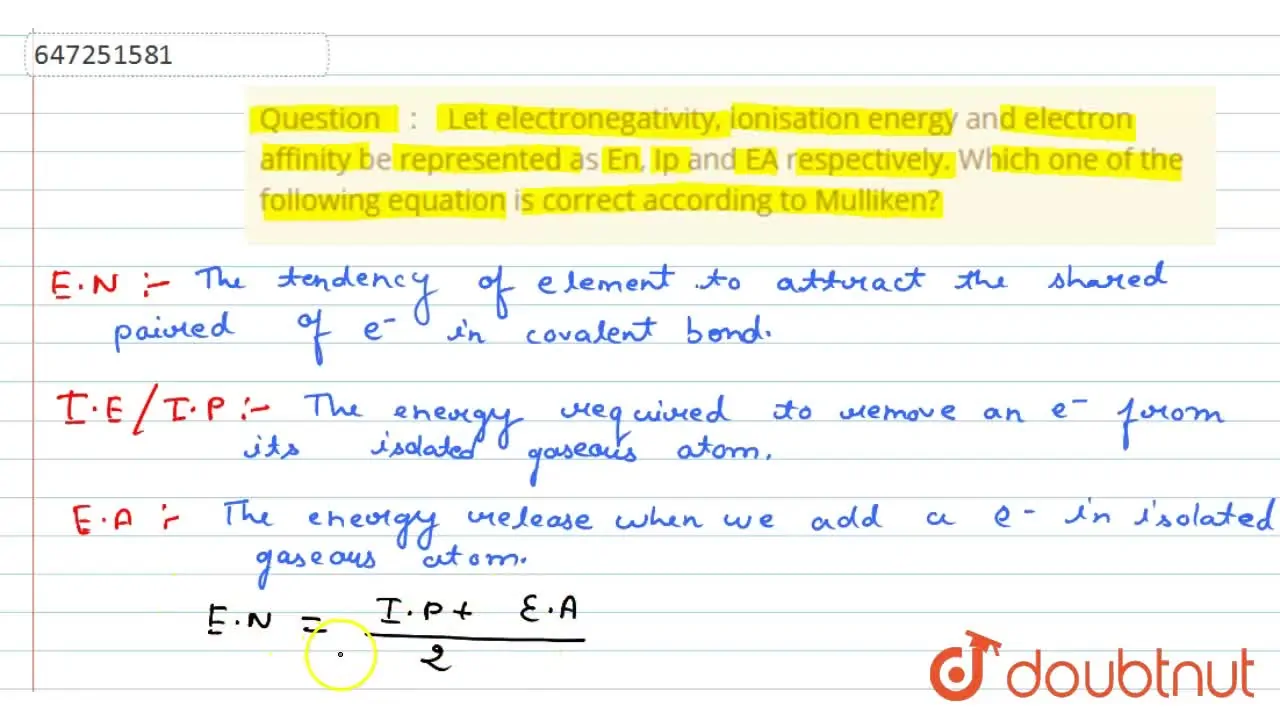 647251581
Question : Let electronegativity, ionisation energy and electron
affinity be represented as En, Ip and EA respectively. Which one of the
following equation is correct according to Mulliken?
E.N :- The tendency of element to attract the shared
paired of e⁻ in covalent bond.
I.E/I.P :- The energy required to remove an e⁻ from
its isolated gaseous atom.
E.A :- The energy release when we add a e⁻ in isolated
gaseous atom.
E.N = I.P + E.A
2
doubtnut